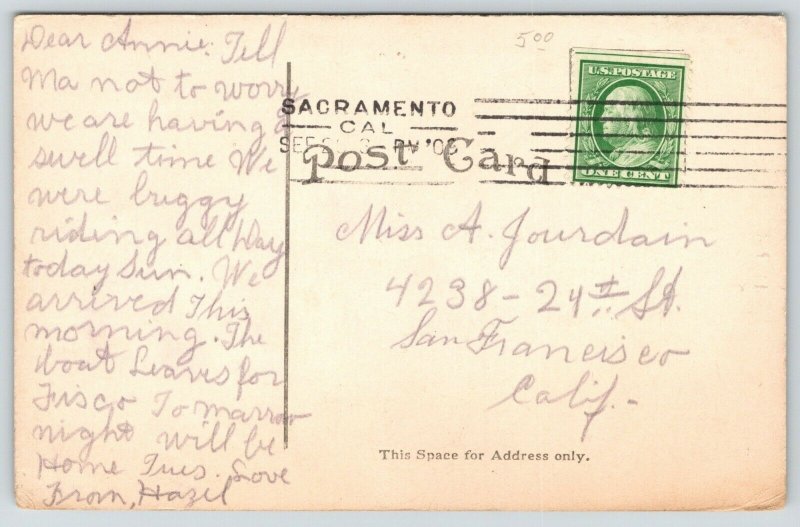 Dear Annie. Tell
Ma not to worry
we are having a
swell time We
were buggy
riding all Day
today Sun. We
arrived This
morning. The
boat Leaves for
Frisco Tomarrow
night will be
Home Tues. Love
From, Hazel
5.00
SACRAMENTO
CAL
Post Card
U.S. POSTAGE
ONE CENT
Miss A. Jourdain
4238 - 24th St.
San Francisco
Calif. -
This Space for Address only.